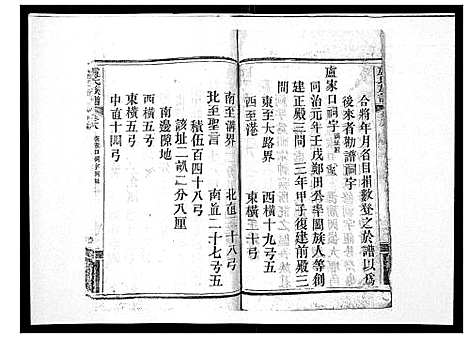 合將年月畓目捐數登之於譜以爲
後來者勸譜祠宇
盧家口祠宇
同治元年壬戌鄭田公率闔族人等創
建正殿三間 三年甲子復建前殿三
間
東至大路界 西橫十九弓五
西至港 東橫三十弓
南至溝界 北直三十八弓
北至聖言 南直二十七弓五
積伍百四十八弓
該址二畝二分八厘
南邊隙地
西橫五弓
東橫五弓
中直十四弓
盧氏族譜 卷六